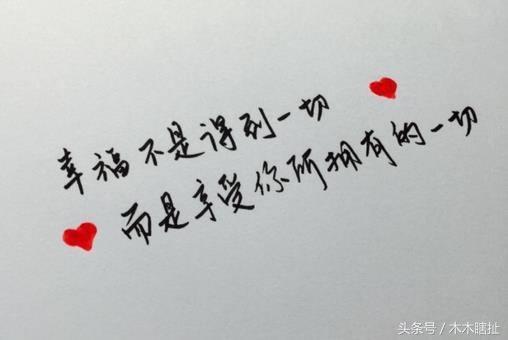 幸福不是得到一切
而是享受你所拥有的一切
头条号／木木瞎扯